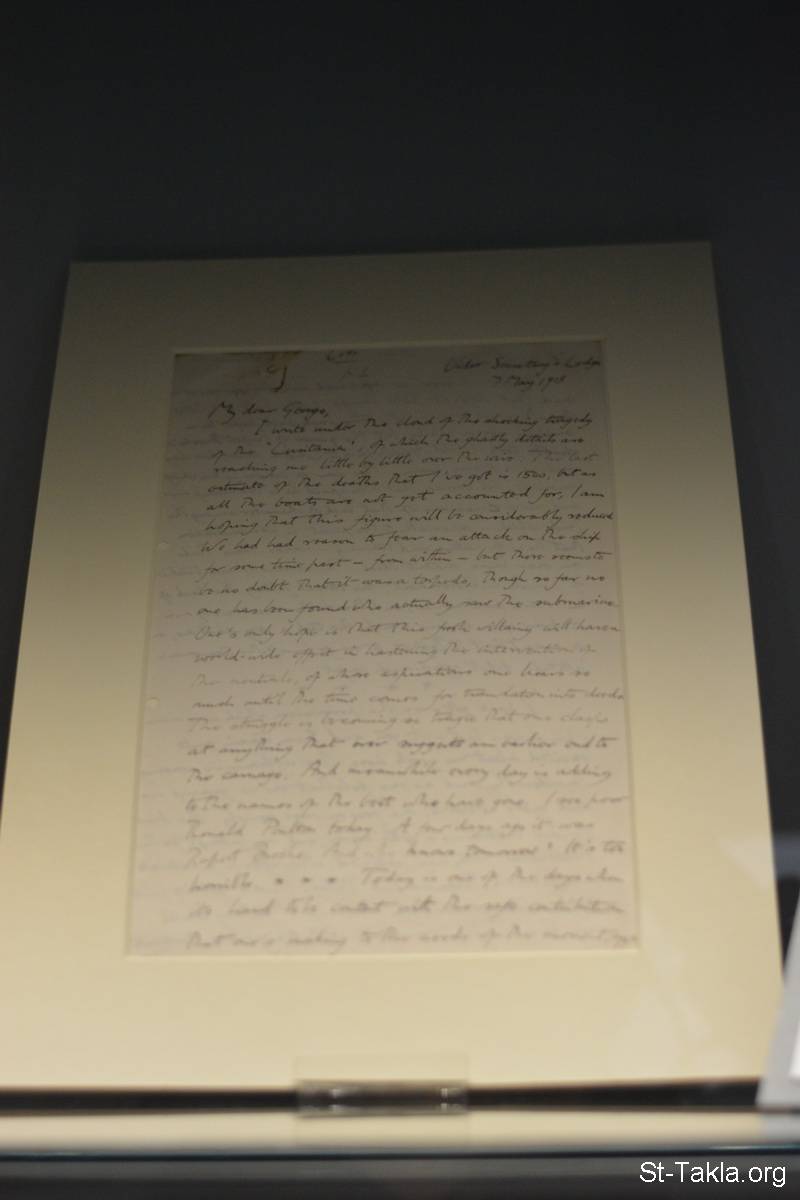 Under Secretary's Lodge
7 May 1915
My dear George,
I write under the cloud of the shocking tragedy
of the "Lusitania", of which the ghastly details are
reaching me little by little over the wire. The last
estimate of the deaths that I've got is 1500, but as
all the boats are not yet accounted for, I am
hoping that this figure will be considerably reduced
We had had reason to fear an attack on the ship
for some time past – from within – but there seems to
be no doubt that it was a torpedo, though so far no
one has been found who actually saw the submarine
One's only hope is that this fresh villainy will have a
world-wide effect in hastening the intervention of
the neutrals, of whose aspirations one hears so
much until the time comes for translation into deeds
The struggle is becoming so tragic that one clasps
at anything that ever suggests an earlier end to
the carnage. And meanwhile every day is adding
to the names of the best who have gone. I see poor
Ronald Poulton today. A few days ago it was
Rupert Brooke. And who knows tomorrow? It's too
horrible. * * * Today is one of the days when
it's hard to be content with the safe contribution
that one's making to the needs of the moment,
St-Takla.org